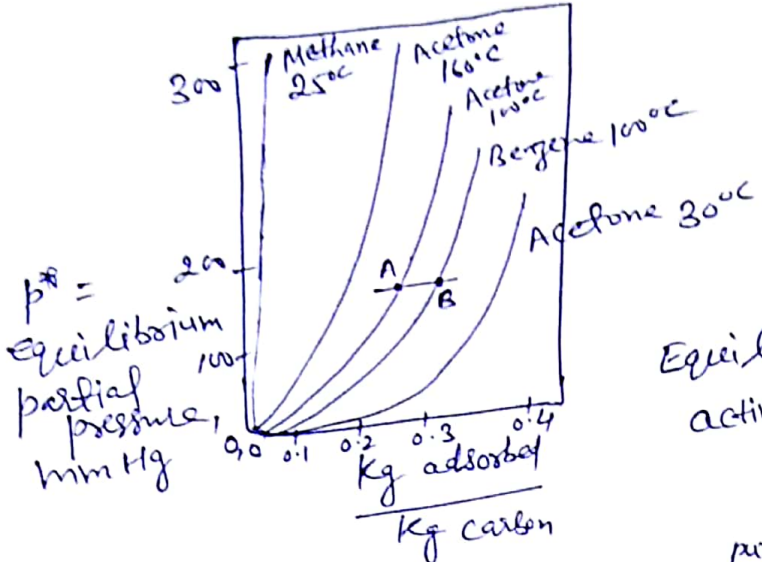 300
Methane
25°C
Acetone
160°C
Acetone
100°C
Benzene 100°C
Acetone 30°C
200
A
B
p* =
equilibrium
partial
pressure,
mm Hg
100
0,0 0.1 0.2 0.3 0.4
Kg adsorbed
Kg carbon
Equil
acti
pu